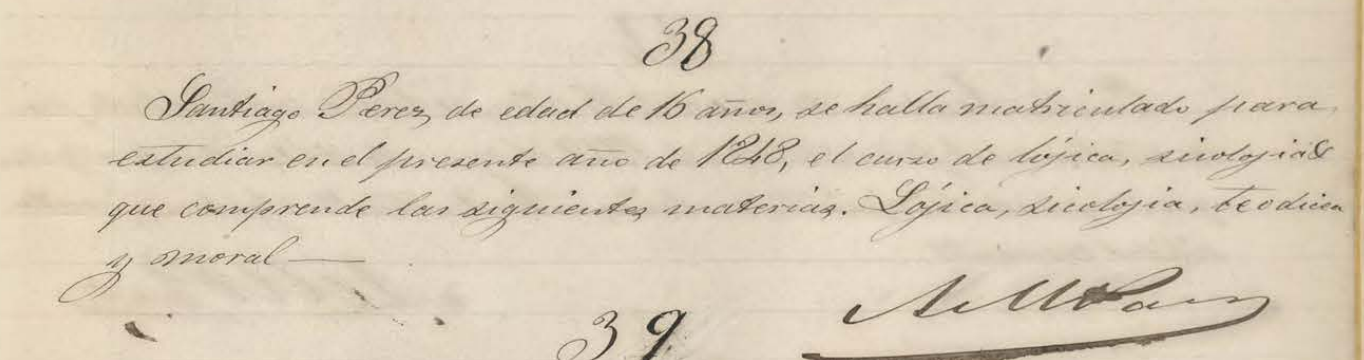 38
Santiago Perez, de edad de 16 años, se halla matriculado para
estudiar en el presente año de 1848, el curso de lójica, sicolojia &
que comprende las siguientes materias. Lójica, sicolojia, teodicea
y moral —
39